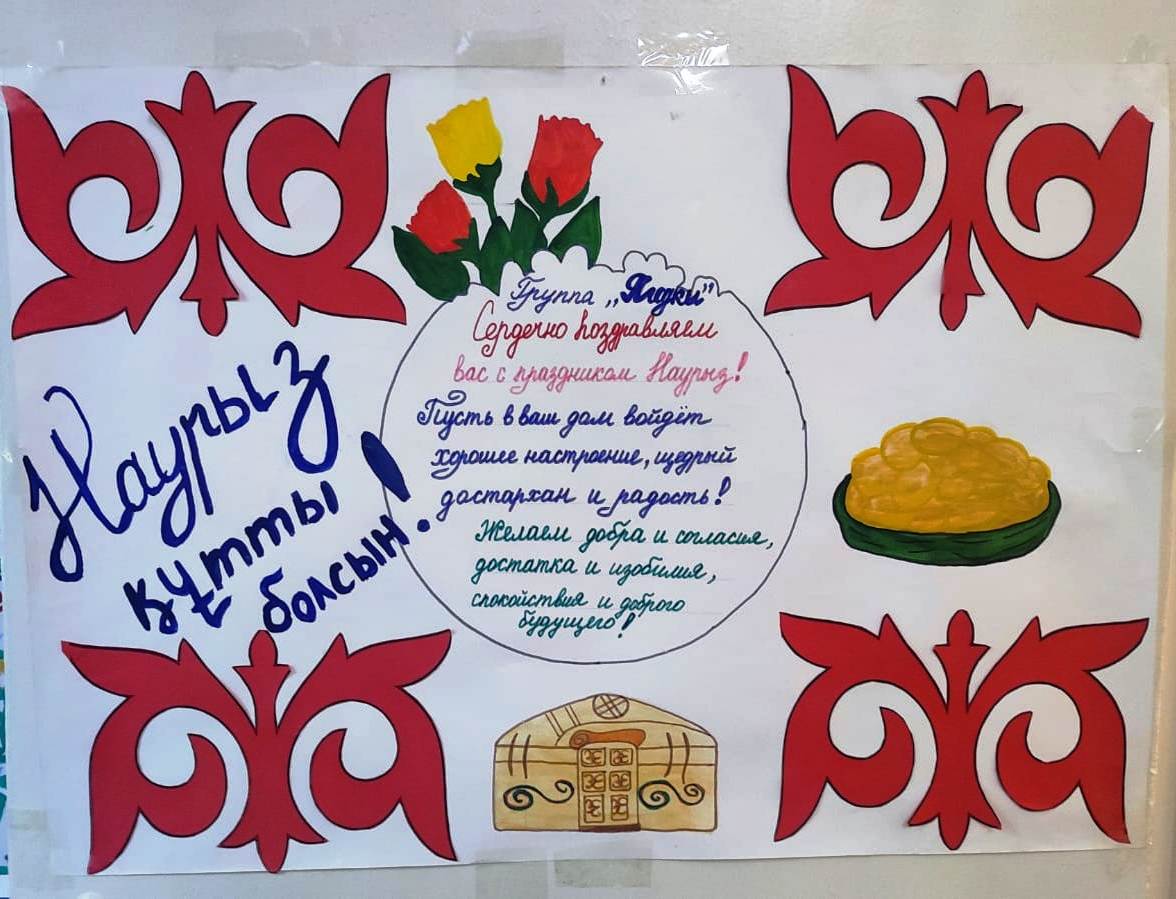 Наурыз
құтты
болсын!
Группа „Ягодки"
Сердечно поздравляем
вас с праздником Наурыз!
Пусть в ваш дом войдёт
хорошее настроение, щедрый
достархан и радость!
Желаем добра и согласия,
достатка и изобилия,
спокойствия и доброго
будущего!